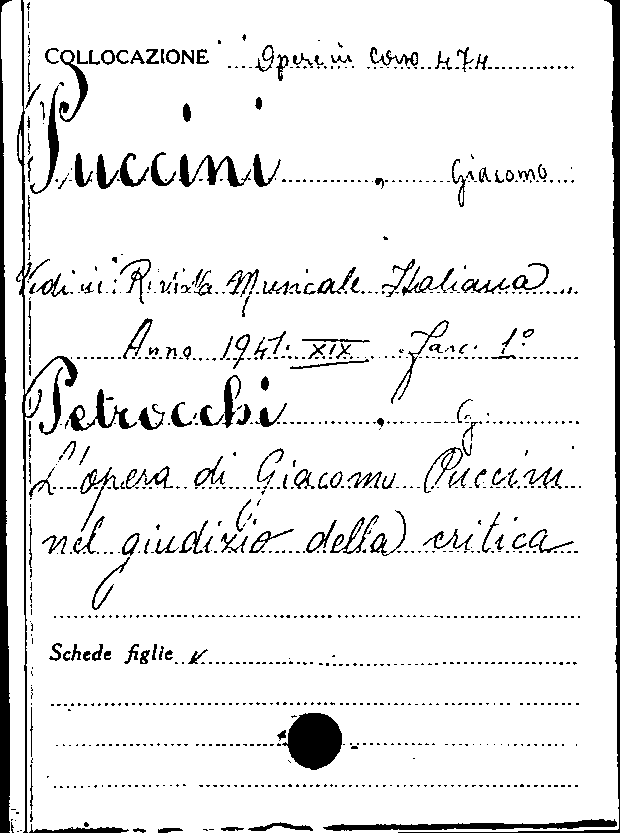 COLLOCAZIONE Opere in Corso 474
Puccini , Giacomo
Vedi in: Rivista Musicale Italiana
Anno 1941. XIX Fasc. 1º
Petrocchi , G.
L'opera di Giacomo Puccini
nel giudizio della critica
Schede figlie